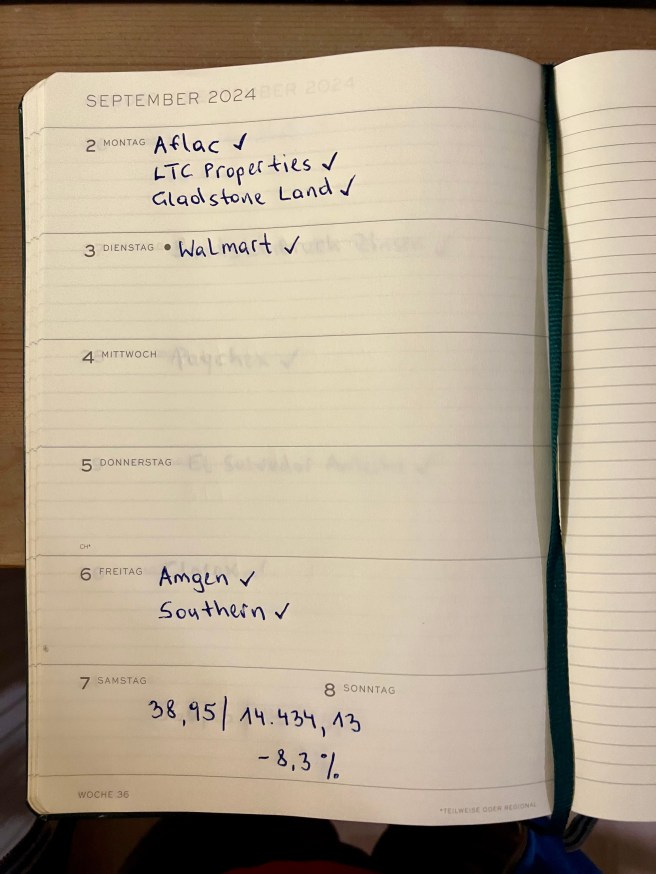 SEPTEMBER 2024
2 MONTAG Aflac ✓
LTC Properties ✓
Gladstone Land ✓
3 DIENSTAG • Walmart ✓
4 MITTWOCH Paychex ✓
5 DONNERSTAG El Salvador
CH*
6 FREITAG Amgen ✓
Southern ✓
7 SAMSTAG
8 SONNTAG
38,95/ 14.434,13
-8,3 %
WOCHE 36
*TEILWEISE ODER REGIONAL